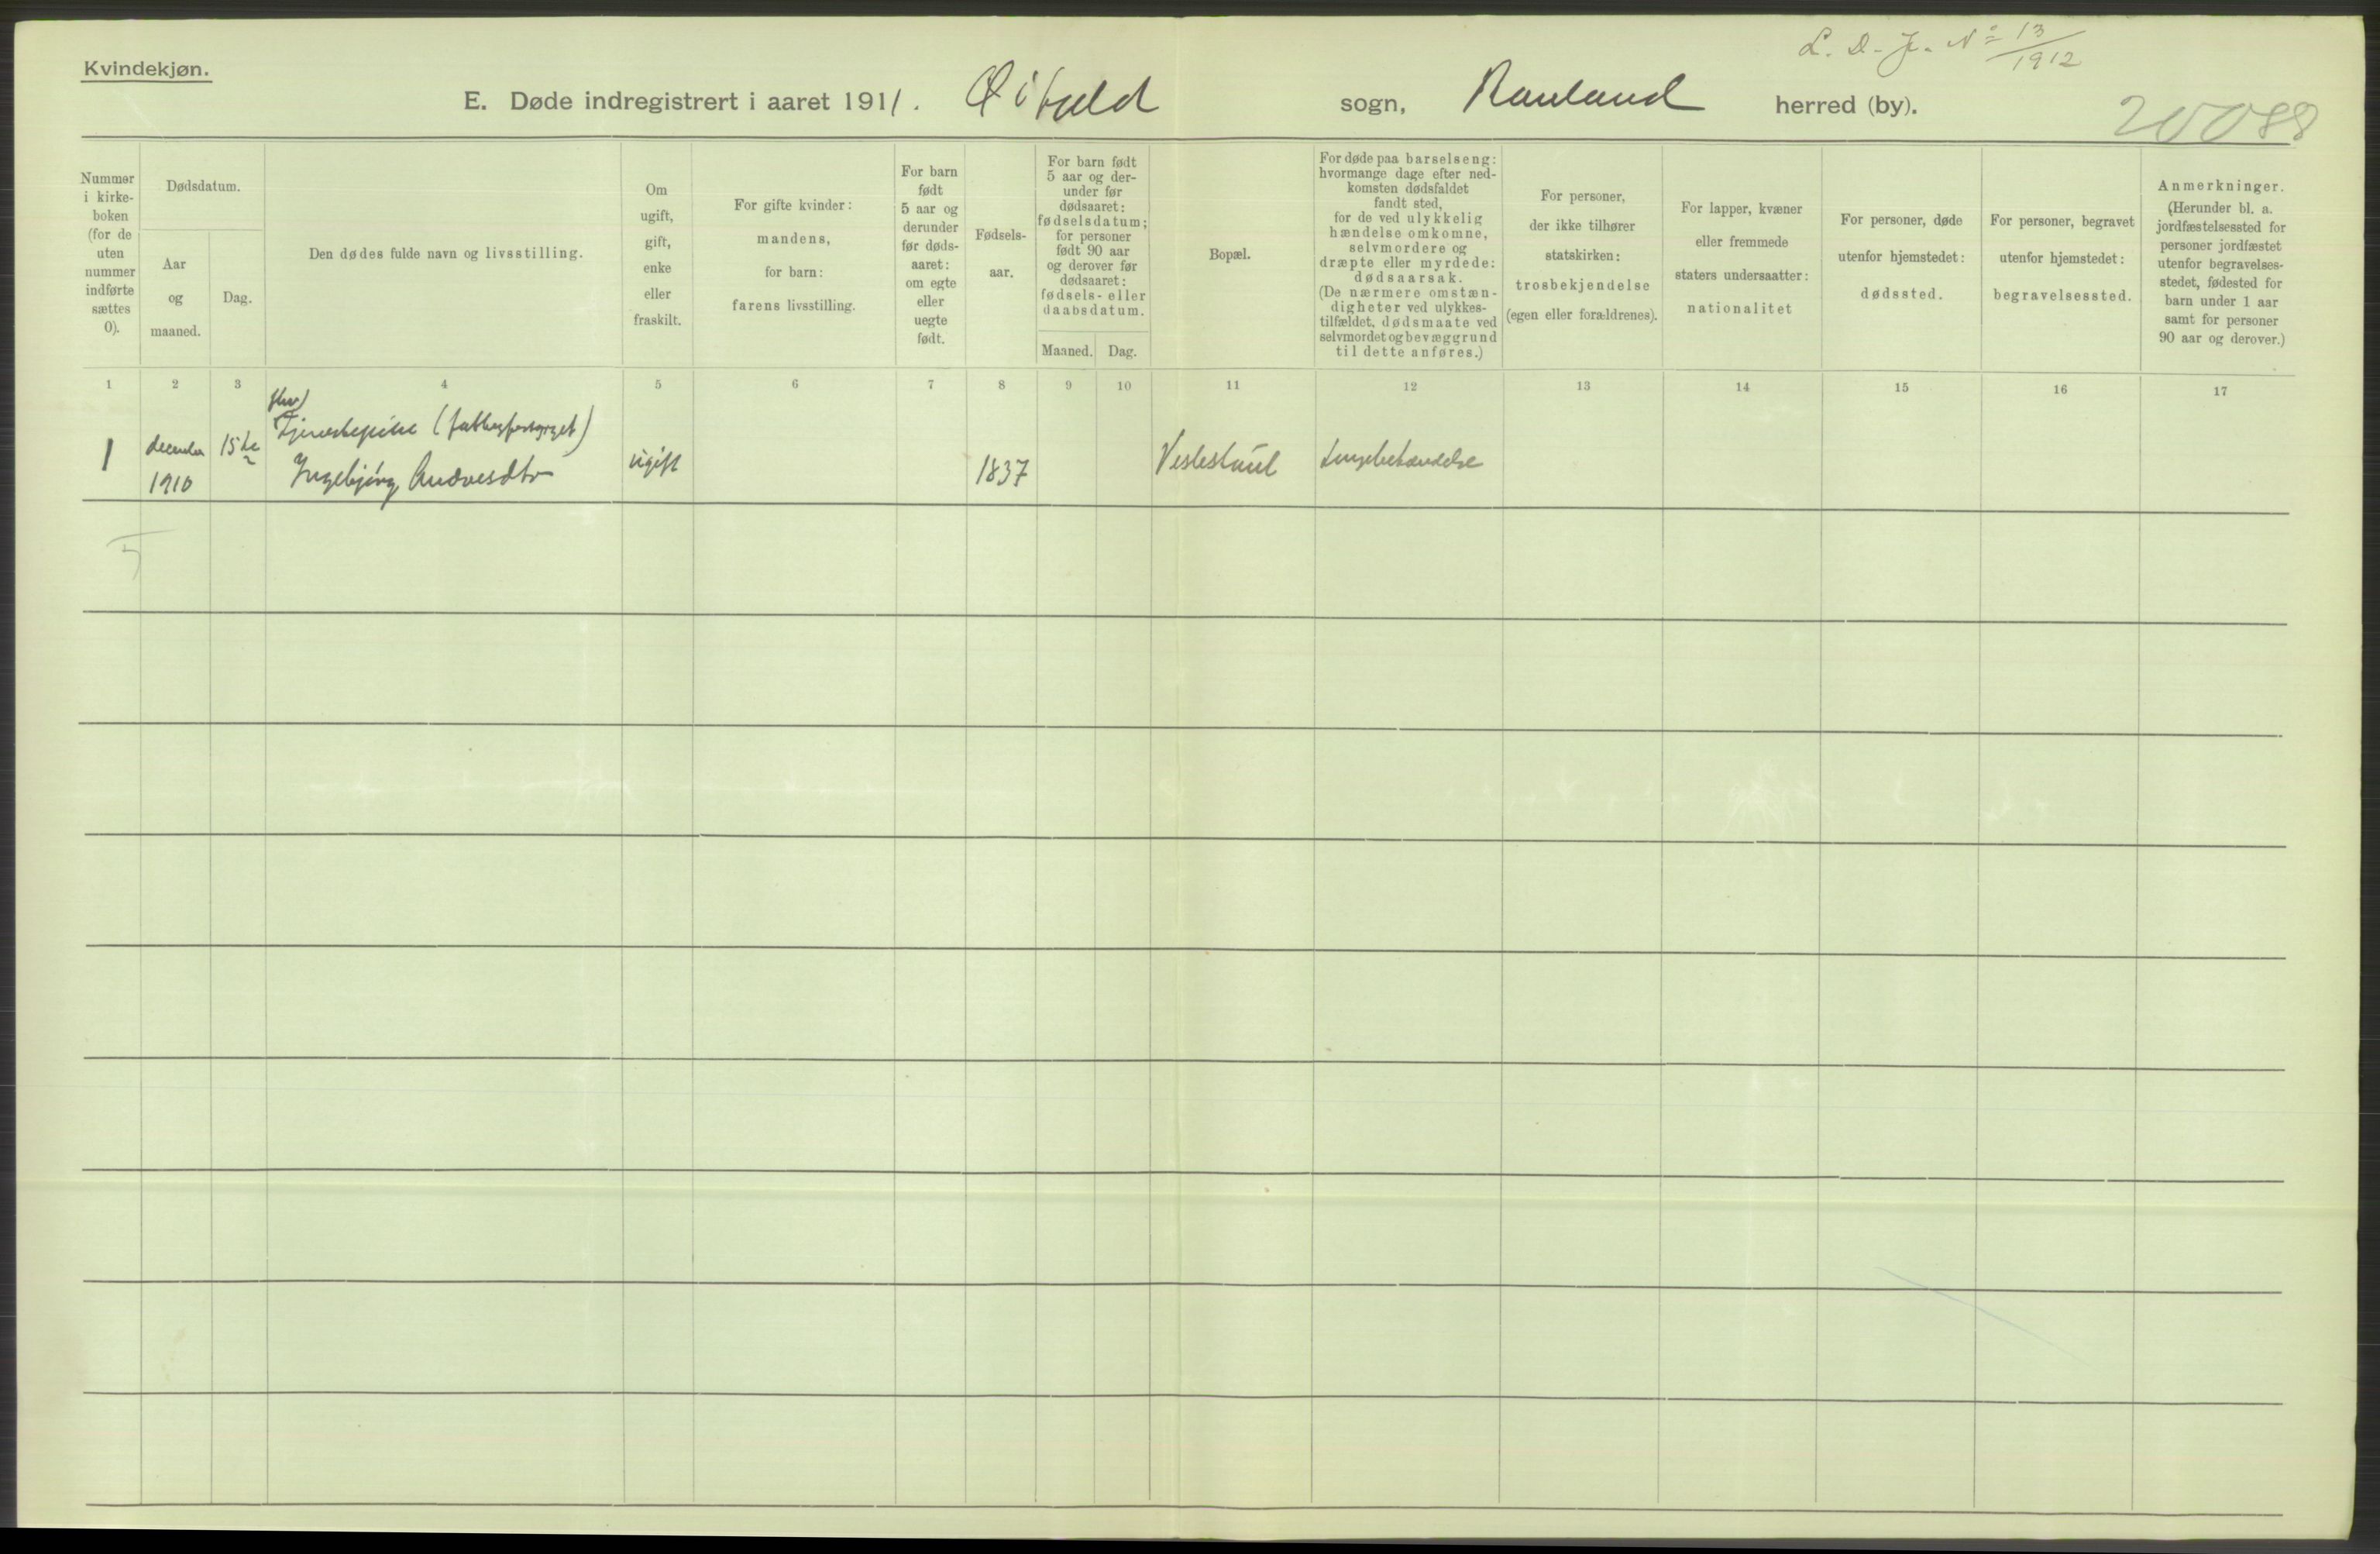 L. D. J. Nº 13/1912
Kvindekjøn.
E. Døde indregistrert i aaret 1911. Øifjeld sogn, Rauland herred (by).
20088
Nummer
i kirke-
boken
(for de
uten
nummer
indførte
sættes
0).
Dødsdatum.
Aar
og
maaned.
Dag.
Den dødes fulde navn og livsstilling.
Om
ugift,
gift,
enke
eller
fraskilt.
For gifte kvinder:
mandens,
for barn:
farens livsstilling.
For barn
født
5 aar og
derunder
før døds-
aaret:
om egte
eller
uegte
født.
Fødsels-
aar.
For barn født
5 aar og der-
under før
dødsaaret:
fødselsdatum;
for personer
født 90 aar
og derover før
dødsaaret:
fødsels- eller
daabsdatum.
Maaned.
Dag.
Bopæl.
For døde paa barselseng:
hvormange dage efter ned-
komsten dødsfaldet
fandt sted,
for de ved ulykkelig
hændelse omkomne,
selvmordere og
dræpte eller myrdede:
dødsaarsak.
(De nærmere omstæn-
digheter ved ulykkes-
tilfældet, dødsmaate ved
selvmordet og bevæggrund
til dette anføres.)
For personer,
der ikke tilhører
statskirken:
trosbekjendelse
(egen eller forældrenes).
For lapper, kvæner
eller fremmede
staters undersaatter:
nationalitet
For personer, døde
utenfor hjemstedet:
dødssted.
For personer, begravet
utenfor hjemstedet:
begravelsessted.
Anmerkninger.
(Herunder bl. a.
jordfæstelsessted for
personer jordfæstet
utenfor begravelses-
stedet, fødested for
barn under 1 aar
samt for personer
90 aar og derover.)
1 2 3 4 5 6 7 8 9 10 11 12 13 14 15 16 17
1
december
1910
15de
Tjenestepike (fattigforsørget)
Ingebjørg Andresdtr
ugift
1837
Veslestaul
Lungebetændelse